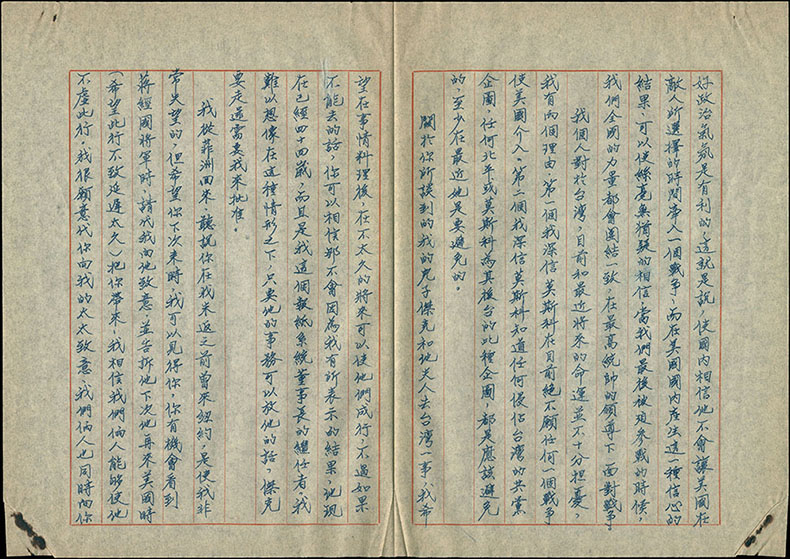 好政治氣氛是有利的，這就是說，使國內相信他不會讓美國在
敵人所選擇的時間帶入一個戰爭，而在美國國內產生這一種信心的
結果，可以使絲毫無猶疑的相信，當我們最後被迫參戰的時候，
我們全國的力量都會團結一致，在最高統帥的領導下，面對戰爭
我個人對於台灣，目前和最近將來的命運並不十分担憂，
我有兩個理由，第一個我深信莫斯科在目前絕不願任何一個戰爭
使美國介入，第二個我深信莫斯科知道任何侵佔台灣的共黨
企圖，任何北平或莫斯科為其後台的此種企圖，都是應該避免
的，至少在最近他是要避免的。
關於你所談到的我的兒子傑克和他夫人去台灣一事，我希
望在事情料理後，在不太久的將來可以使他們成行，不過如果
不能去的話，你可以相信那不會因為我有所表示的結果，他現
在已經四十四歲，而且是我這個報紙系統董事長的繼任者，我
難以想像在這種情形之下，只要他的事務可以放他的話，傑克
要走還需要我來批准。
我從菲洲回來，聽說你在我未返之前曾來紐約，是使我非
常失望的，但希望你下次來時，我可以見得你，你有機會看到
蔣經國將軍時，請代我向他致意，並告訴他下次他再來美國時
（希望此行不致延遲太久）把你帶來，我相信我們倆人能夠使他
不虛此行。我很願意代你向我的太太致意，我們倆人也同時向你